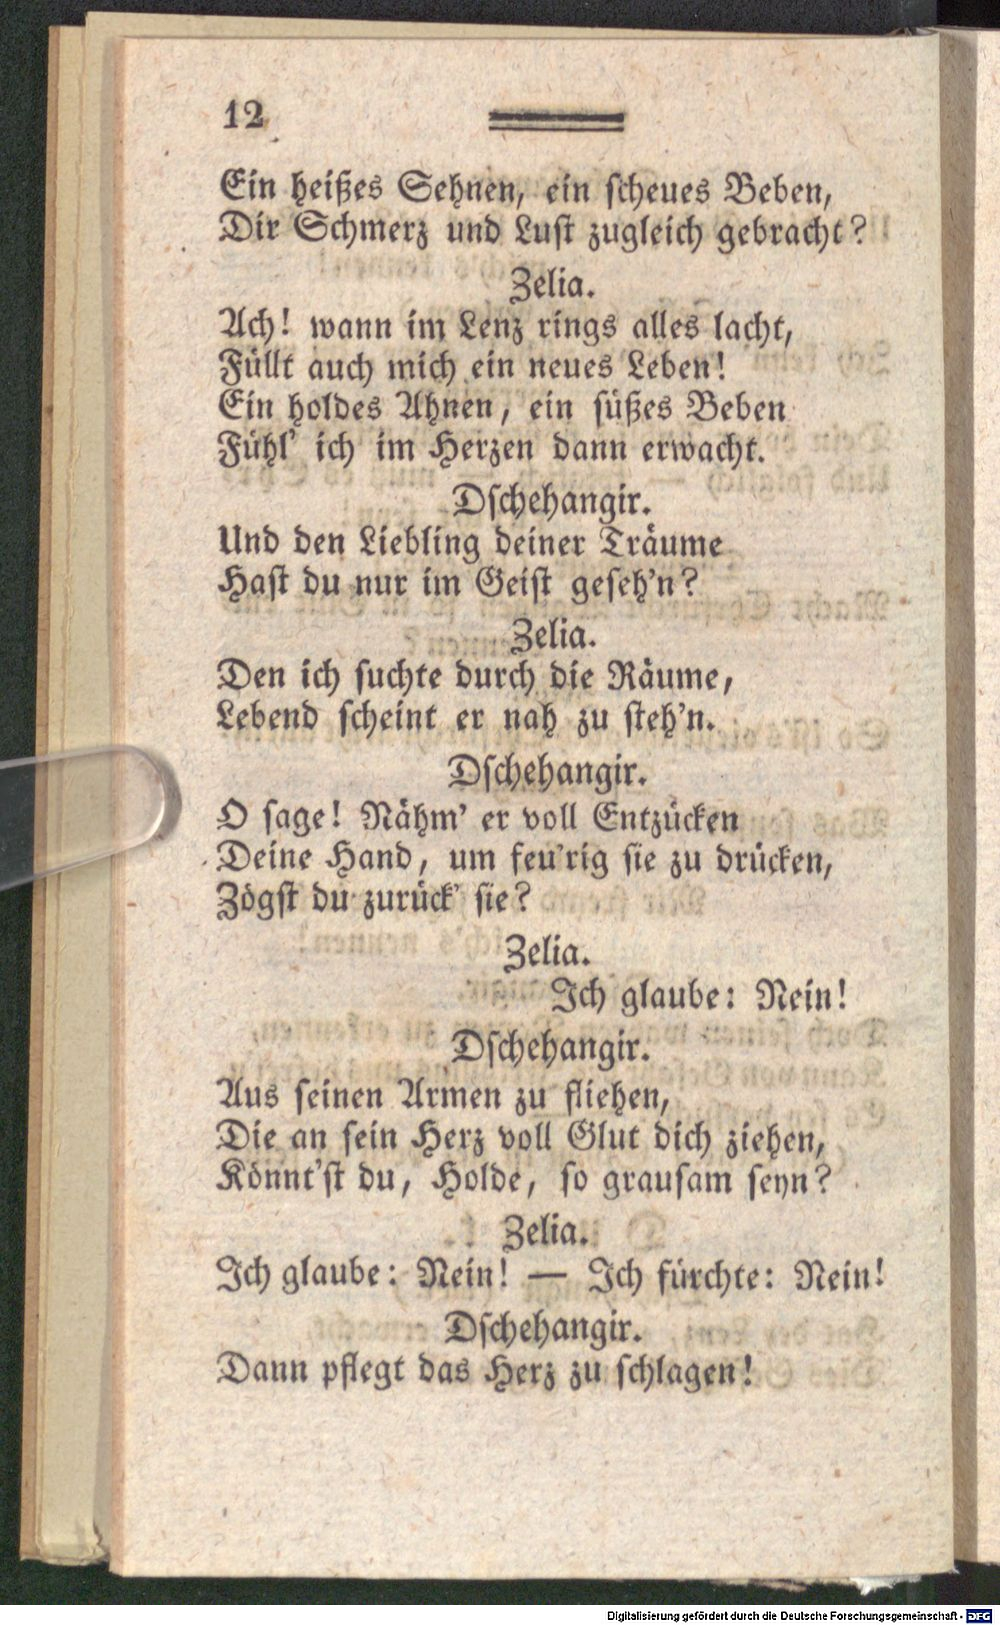 12
Ein heißes Sehnen, ein scheues Beben,
Dir Schmerz und Lust zugleich gebracht?
Zelia.
Ach! wann im Lenz rings alles lacht,
Füllt auch mich ein neues Leben!
Ein holdes Ahnen, ein süßes Beben
Fühl' ich im Herzen dann erwacht.
Dschehangir.
Und den Liebling deiner Träume
Hast du nur im Geist geseh'n?
Zelia.
Den ich suchte durch die Räume,
Lebend scheint er nah zu steh'n.
Dschehangir.
O sage! Nähm' er voll Entzücken
Deine Hand, um feu'rig sie zu drücken,
Zögst du zurück' sie?
Zelia.
Ich glaube: Nein!
Dschehangir.
Aus seinen Armen zu fliehen,
Die an sein Herz voll Glut dich ziehen,
Könnt'st du, Holde, so grausam seyn?
Zelia.
Ich glaube: Nein! — Ich fürchte: Nein!
Dschehangir.
Dann pflegt das Herz zu schlagen!
Digitalisierung gefördert durch die Deutsche Forschungsgemeinschaft - DFG